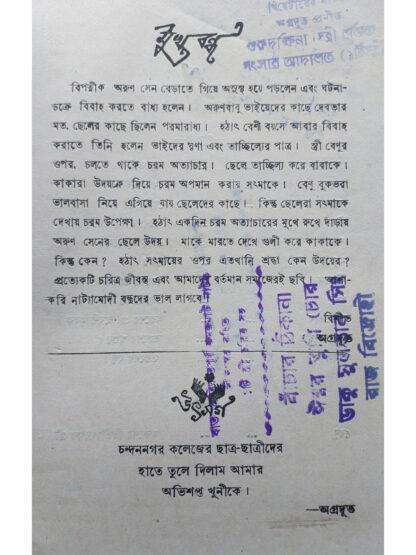 মুখবন্ধ
অগ্রদূত প্রণীত
গুরুদক্ষিণা
সংসার আদালত
বিপত্নীক অরুণ সেন বেড়াতে গিয়ে অসুস্থ হয়ে পড়লেন এবং ঘটনা-
চক্রে বিবাহ করতে বাধ্য হলেন। অরুণবাবু ভাইয়েদের কাছে দেবতার
মত, ছেলের কাছে ছিলেন পরমারাধ্য। হঠাৎ বেশী বয়সে আবার বিবাহ
করাতে তিনি হলেন ভাইদের ঘৃণা এবং তাচ্ছিল্যের পাত্র। স্ত্রী বেণুর
ওপর, চলতে থাকে চরম অত্যাচার। ছেলে তাচ্ছিল্য করে বাবাকে।
কাকারা উদয়কে দিয়ে চরম অপমান করায় সৎমাকে। বেণু বুকভরা
ভালবাসা নিয়ে এগিয়ে যায় ছেলেদের কাছে। কিন্তু ছেলেরা সৎমাকে
দেখায় চরম উপেক্ষা। হঠাৎ একদিন চরম অত্যাচারের মুখে রুখে দাঁড়ায়
অরুণ সেনের ছেলে উদয়। মাকে মারতে দেখে গুলী করে কাকাকে।
কিন্তু কেন? হঠাৎ সৎমায়ের ওপর এতখানি শ্রদ্ধা কেন উদয়ের?
প্রত্যেকটি চরিত্র জীবন্ত এবং আমাদের বর্তমান সমাজেরই ছবি। আশা-
করি নাট্যামোদী বন্ধুদের ভাল লাগবে।
বিনীত
অগ্রদূত
বাঁচার ঠিকানা
রাজ বিদ্রোহী
উৎসর্গ
চন্দননগর কলেজের ছাত্র-ছাত্রীদের
হাতে তুলে দিলাম আমার
অভিশপ্ত খুনীকে।
—অগ্রদূত